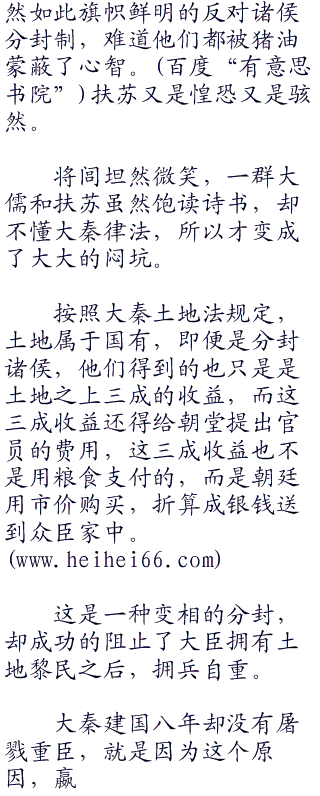 然如此旗帜鲜明的反对诸侯
分封制，难道他们都被猪油
蒙蔽了心智。(百度“有意思
书院”)扶苏又是惶恐又是骇
然。
将闾坦然微笑，一群大
儒和扶苏虽然饱读诗书，却
不懂大秦律法，所以才变成
了大大的闷坑。
按照大秦土地法规定，
土地属于国有，即便是分封
诸侯，他们得到的也只是是
土地之上三成的收益，而这
三成收益还得给朝堂提出官
员的费用，这三成收益也不
是用粮食支付的，而是朝廷
用市价购买，折算成银钱送
到众臣家中。
(www.heihei66.com)
这是一种变相的分封，
却成功的阻止了大臣拥有土
地黎民之后，拥兵自重。
大秦建国八年却没有屠
戮重臣，就是因为这个原
因，嬴